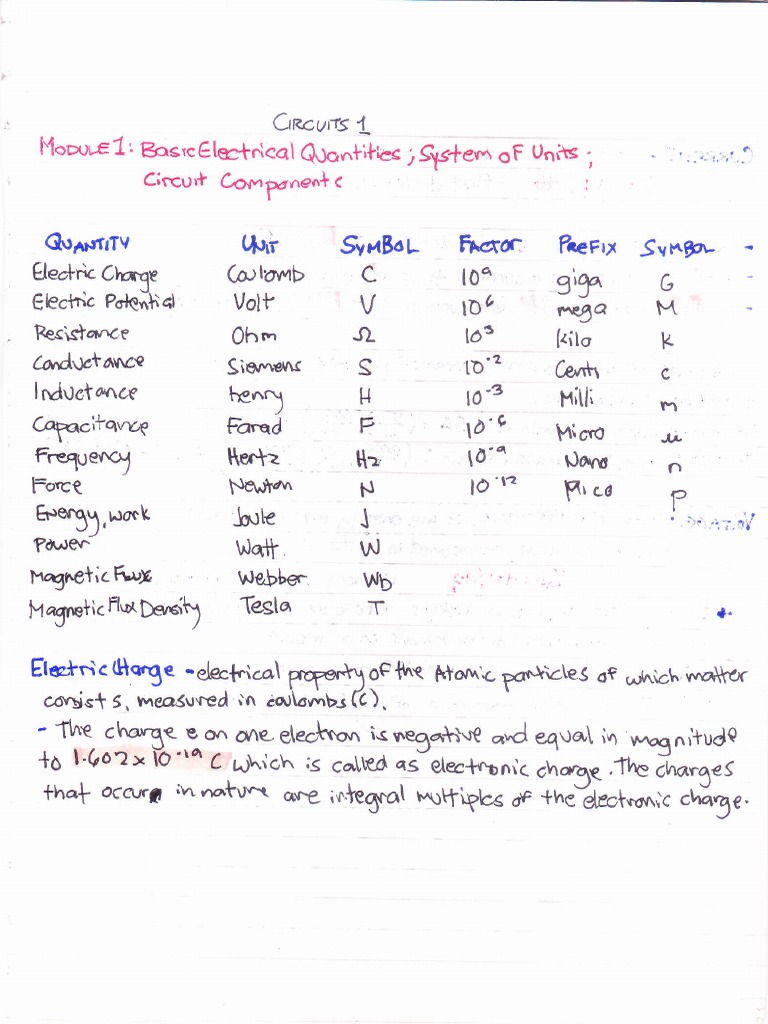 CIRCUITS 1
MODULE 1: Basic Electrical Quantities; System of Units;
Circuit Components
QUANTITY UNIT SYMBOL FACTOR PREFIX SYMBOL
Electric Charge Coulomb C 10⁹ giga G
Electric Potential Volt V 10⁶ mega M
Resistance Ohm Ω 10³ kilo k
Conductance Siemens S 10⁻² Centi c
Inductance henry H 10⁻³ Milli m
Capacitance Farad F 10⁻⁶ Micro μ
Frequency Hertz Hz 10⁻⁹ Nano n
Force Newton N 10⁻¹² Pico p
Energy, work Joule J
Power Watt W
Magnetic Flux Webber Wb
Magnetic Flux Density Tesla T
Electric Charge - electrical property of the Atomic particles of which matter
consists, measured in coulombs (C).
- The charge e on one electron is negative and equal in magnitude
to 1.602 x 10⁻¹⁹ C which is called as electronic charge. The charges
that occur in nature are integral multiples of the electronic charge.